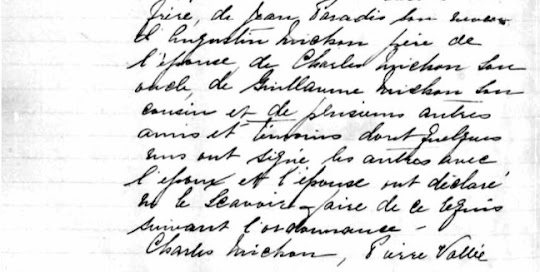 frère, de Jean Paradis son neveu
d'Augustin Michon frère de
l'épouse de Charles Michon son
oncle, de Guillaume Michon son
cousin et de plusieurs autres
amis et témoins dont quelques
uns ont signé les autres avec
l'époux et l'épouse ont déclaré
ne le scavoir faire de ce requis
suivant l'ordonnance -
Charles Michon, Pierre Vallée